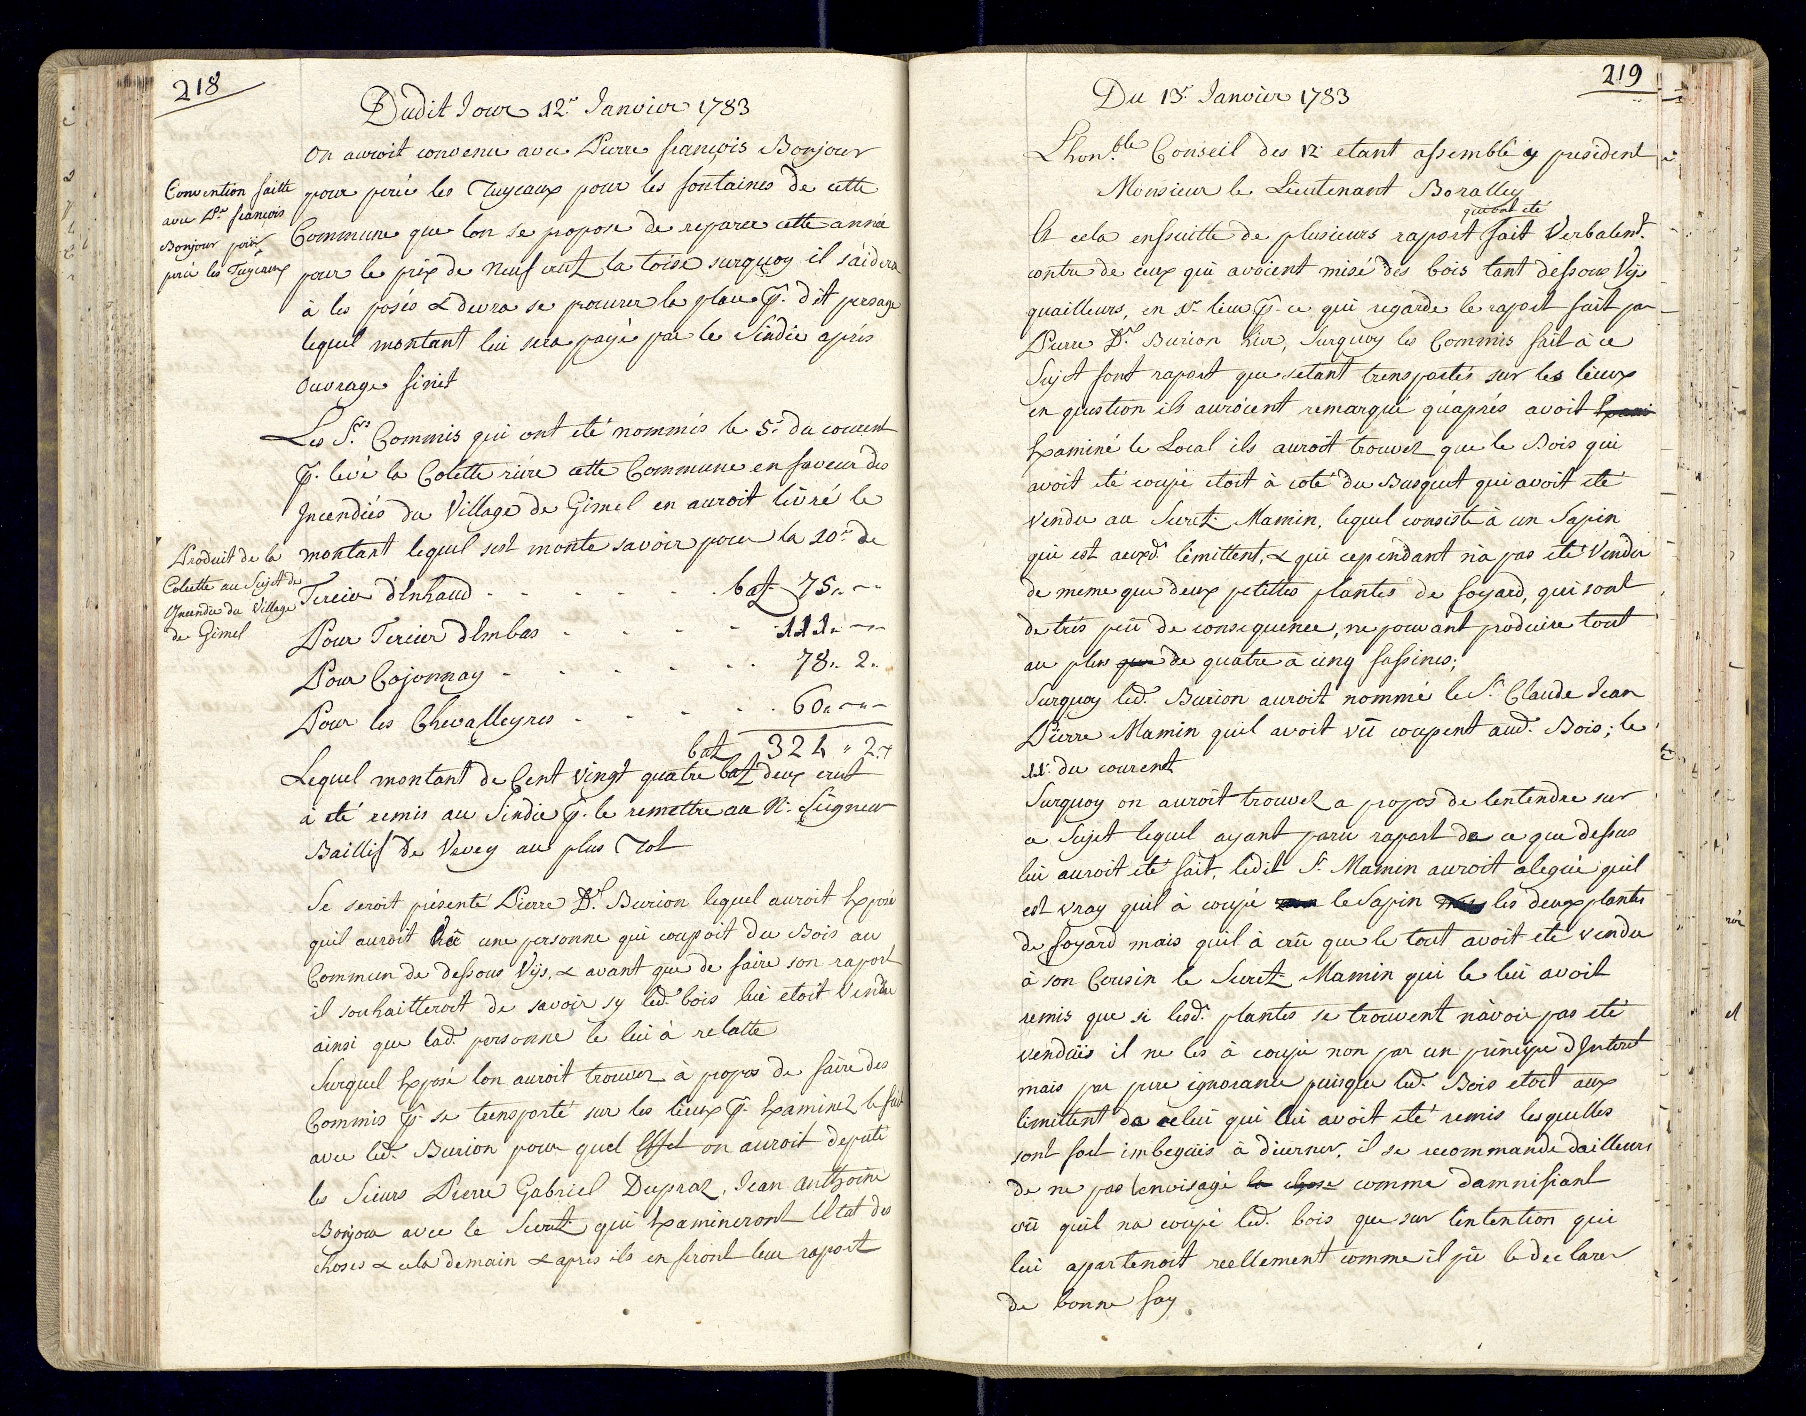 218
Dudit Jour 12.e Janvier 1783
On auroit convenu avec Pierre françois Bonjour
Convention faitte
avec P.re francois
Bonjour pour
percé les Tuyeaux
pour percé les Tuyeaux pour les fontaines de cette
Commune que lon se propose de reparer cette année
pour le prix de neuf crutz la toise surquoy il s'aidera
à les posés & devra se procurer la place p. dit persage
lequel montant lui sera payé par le Sindic aprés
Ouvrage finit
Les S.rs Commis qui ont eté nommés le 5.e du courent
p. levé la Colette riére cette Commune en faveur des
Incendiés du Village de Gimel en auroit livré le
montant lequel sest monte savoir pour la 20.e de
Produit de la
Colette au Sujet de
Incendie du Village
de Gimel
Tercier d'Enhaud - - - - - - batz 75.. --
Pour Tercier d'Embas - - - - 111.. --
Pour Cojonnay - - - - - 78.. 2..
Pour les Chevalleyres - - - - - 60.. --
batz 324 " 2.x
Lequel montant de Cent vingt quatre batz deux crut
à eté remis au Sindic p. le remettre au N. Seigneur
Baillif de Vevey au plus Tot
Se seroit présenté Pierre D.l Burion lequel auroit Exposé
quil auroit vû une personne qui coupoit du Bois au
Commun de dessous Vijs, & avant que de faire son raport
il souhaitteroit de savoir sy led. bois lui etoit vendu
ainsi que lad. personne le lui à relatte
Surquel Exposé lon auroit trouvez à propos de faire des
Commis p. se trensporté sur les lieux p. Examinez le fait
avec led. Burion pour quel Effet on auroit deputé
les Sieurs Pierre Gabriel Dupraz, Jean Anthoine
Bonjour avec le Secretz qui Examineront l'Etat des
choses & cela demain & aprés ils en feront leur raport
219
Du 13.e Janvier 1783
L'hon.ble Conseil des 12 etant assemblé y president
Monsieur le Lieutenant Boralley
qui ont eté
Et cela ensuitte de plusieurs raport fait Verbalem.t
contre de ceux qui avoient misé des bois tant dessous Vijs
quailleurs, en 1.er lieu p. ce qui regarde le raport fait par
Pierre D.l Burion hier, Surquoy les Commis fait à ce
Sujet font raport que setant trensportés sur les lieux
en question ils auroient remarqué qu'aprés avoit
Examiné le Local ils auroit trouvez que le Bois qui
avoit eté coupé etoit à coté du Busquet qui avoit eté
vendu au Secretz Mamin, lequel consiste à un Sapin
qui est auxd. limittent, & qui cependant n'a pas eté vendu
de meme que deux petittes plantes de foyard, qui sont
de trés peû de consequence, ne pouvant produire tout
au plus que de quatre à cinq fassines;
Surquoy led. Burion auroit nommé le S.r Claude Jean
Pierre Mamin quil avoit vû coupent aud. Bois; le
11.e du courent
Surquoy on auroit trouvez a propos de lentendre sur
ce Sujet lequel ayant paru raport de ce que dessus
lui auroit eté fait, ledit S.r Mamin auroit alegué quil
est vray quil à coupé le Sapin les deux plantes
de foyard mais quil à crû que le tout avoit eté vendu
à son Cousin le Secretz Mamin qui le lui avoit
remis que si lesd. plantes se trouvent n'avoir pas eté
vendûes il ne les à coupé non par un principe d'Interet
mais par pure ignorance puisque led. Bois etoit aux
limittent de celui qui lui avoit eté remis lesquelles
sont fort imbegues à discerner, il se recommande dailleurs
de ne pas l'envisagé la chose comme damnifiant
vû quil na coupé led. bois que sur lintention qui
lui apartenoit reellement comme il pû le declarer
de bonne foy